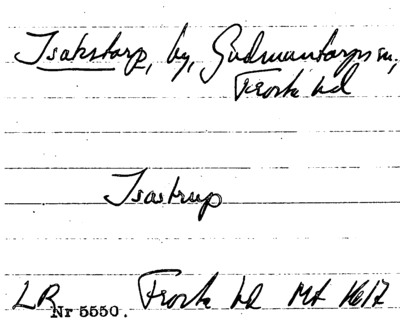 Isakstorp, by, Gudmuntorps sn,
Frosta hd
Isastrup
LR Nr 5550. Frosta hd Mt 1617